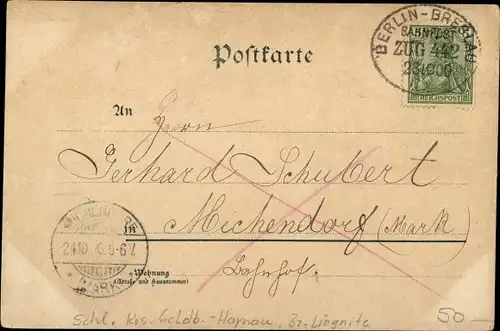 Postkarte
BERLIN-BRESLAU
BAHNPOST
ZUG 442
REICHSPOST
An
Herrn
Gerhard Schubert
in Michendorf (Mark)
Bahnhof.
Wohnung
(Straße und Hausnummer)
MARK
Schl. Krs. Goldb.-Haynau, Bz. Liegnitz
50.-